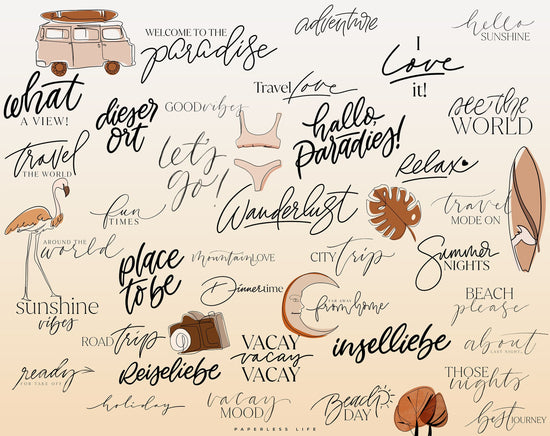 adventure
hello
SUNSHINE
WELCOME TO THE
paradise
I
Love
it!
what
A VIEW!
dieser
ort
GOODvibes
TravelLove
hallo,
Paradies!
see the
WORLD
Let's
go!
travel
THE WORLD
Relax
fun
TIMES
Wanderlust
travel
MODE ON
AROUND THE
world
place
to be
MountainLOVE
CITY trip
Summer
NIGHTS
Dinnertime
FAR AWAY
from home
BEACH
please
sunshine
vibes
ROAD trip
VACAY
vacay
VACAY
inselliebe
about
LAST NIGHT..
ready
FOR TAKE OFF
Reiseliebe
THOSE
nights
holiday
vacay
MOOD
Beach
DAY
best JOURNEY
PAPERLESS LIFE